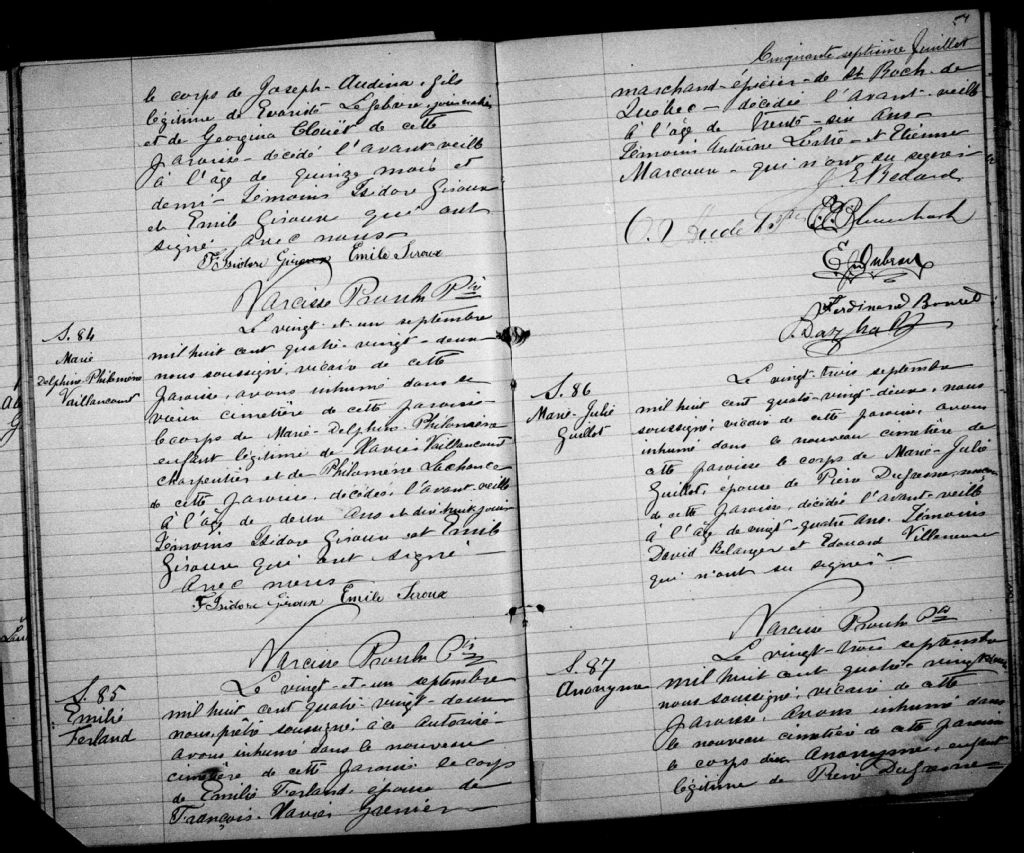 le corps de Joseph-Audina, fils
légitime de Evariste Lefebvre, journalier
et de Georgina Clouët de cette
paroisse - décédé l'avant-veille
à l'âge de quinze mois et
demi - Témoins Isidore Giroux
et Emile Giroux qui ont
signé avec nous
F. Isidore Giroux Emile Giroux
Narcisse Proulx Ptre
S. 84
Marie
Delphine-Philomène
Vaillancourt
Le vingt-et-un septembre
mil huit cent quatre-vingt-deux
nous soussigné, vicaire de cette
paroisse, avons inhumé dans le
vieux cimetière de cette paroisse
le corps de Marie-Delphine-Philomène
enfant légitime de Xavier Vaillancourt
charpentier et de Philomène Lachance
de cette paroisse, décédée l'avant-veille
à l'âge de deux ans et dix-huit jours
Témoins Isidore Giroux et Emile
Giroux qui ont signé
avec nous
F. Isidore Giroux Emile Giroux
Narcisse Proulx Ptre
S. 85
Emilie
Ferland
Le vingt-et-un septembre
mil huit cent quatre-vingt-deux
nous, prêtre soussigné, à ce autorisé
avons inhumé dans le nouveau
cimetière de cette paroisse le corps
de Emilie Ferland, épouse de
François-Xavier Grenier
57
Cinquante septième feuillet
marchand-épicier - de St Roch de
Québec - décédée l'avant-veille
à l'âge de trente-six ans
Témoins Antoine - et Etienne
Marcoux - qui n'ont su signer
J. E. Bedard
Ferdinand
S. 86
Marie-Julie
Guillot
Le vingt-trois septembre
mil huit cent quatre-vingt-deux, nous
soussigné, vicaire de cette paroisse, avons
inhumé dans le nouveau cimetière de
cette paroisse le corps de Marie-Julie
Guillot, épouse de Pierre Dufresne
de cette paroisse, décédée l'avant-veille
à l'âge de vingt-quatre ans. Témoins
David Belanger et Edouard Villeneuve
qui n'ont su signer -
Narcisse Proulx Ptre
S. 87
Anonyme
Le vingt-trois septembre
mil huit cent quatre-vingt-deux
nous soussigné, vicaire de cette
paroisse, avons inhumé dans
le nouveau cimetière de cette paroisse
le corps d'un Anonyme, enfant
légitime de Pierre Dufresne